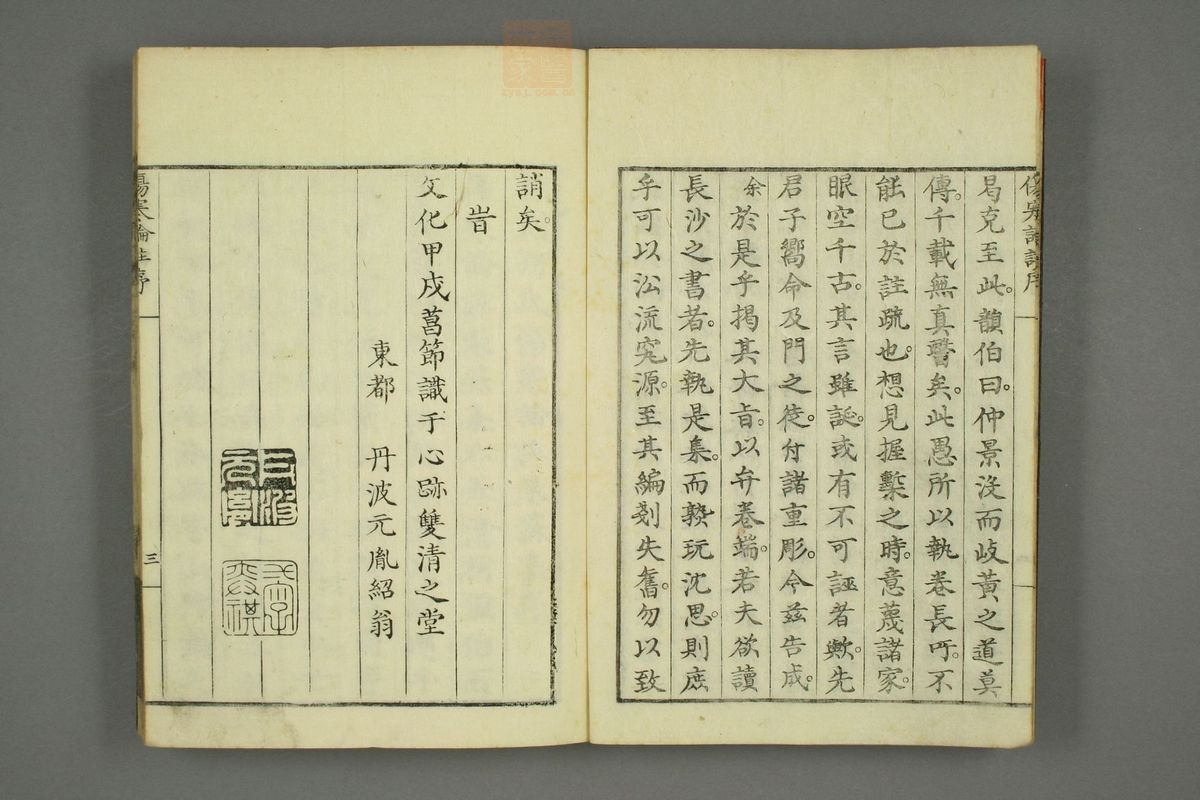 傷寒論註序
曷克至此。韻伯曰。仲景沒而岐黃之道莫
傳。千載無真醫矣。此愚所以執卷長吁。不
能已於註疏也。想見握槧之時。意蔑諸家。
眼空千古。其言雖誕。或有不可誣者歟。先
君子嚮命及門之徒。付諸重彫。今茲告成。
余於是乎揭其大旨。以弁卷端。若夫欲讀
長沙之書者。先執是集。而熟玩沈思。則庶
乎可以沿流究源。至其編剗失舊。勿以致
誚矣。
旹
文化甲戌菖節識于心跡雙清之堂
東都　丹波元胤紹翁
傷寒論註序
三
zysj.com.cn